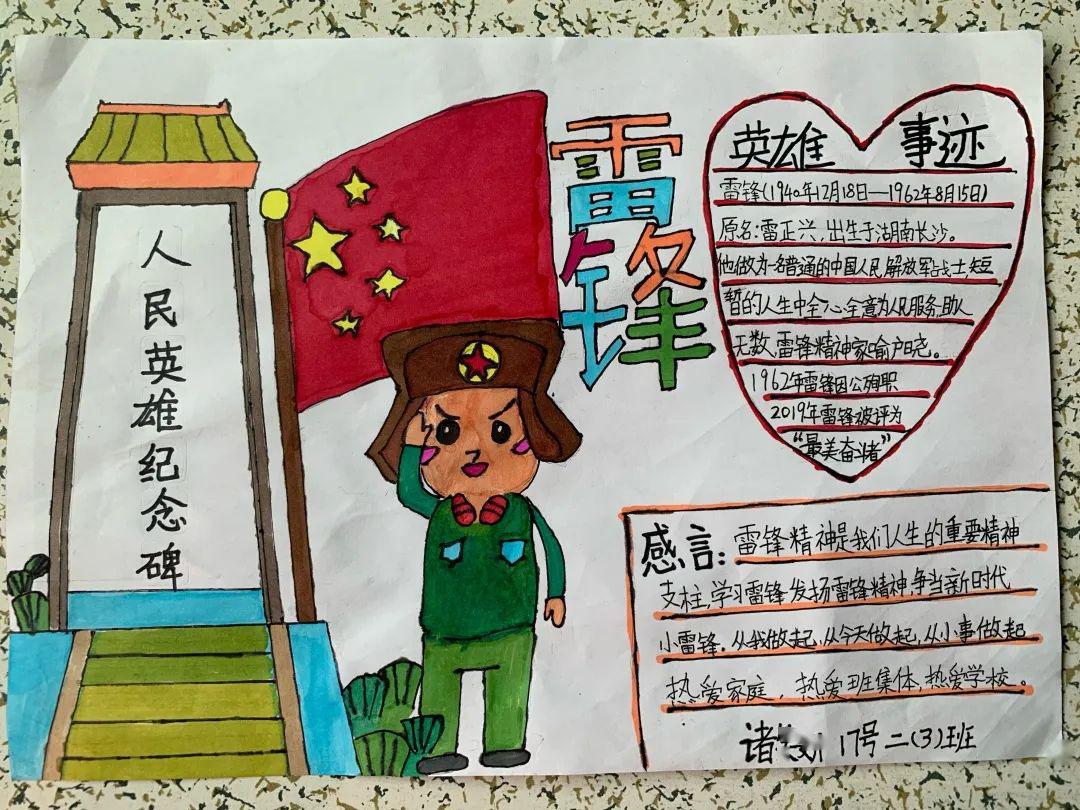 人民英雄纪念碑
雷锋
英雄 事迹
雷锋(1940年12月18日—1962年8月15日)
原名:雷正兴,出生于湖南长沙。
他做为一名普通的中国人民解放军战士短
暂的人生中全心全意为人民服务.助人
无数.雷锋精神家喻户晓。
1962年雷锋因公殉职
2019年雷锋被评为
"最美奋斗者"
感言:雷锋精神是我们人生的重要精神
支柱.学习雷锋发扬雷锋精神.争当新时代
小雷锋.从我做起.从今天做起,从小事做起
热爱家庭,热爱班集体,热爱学校。
诸 17号 二(3)班